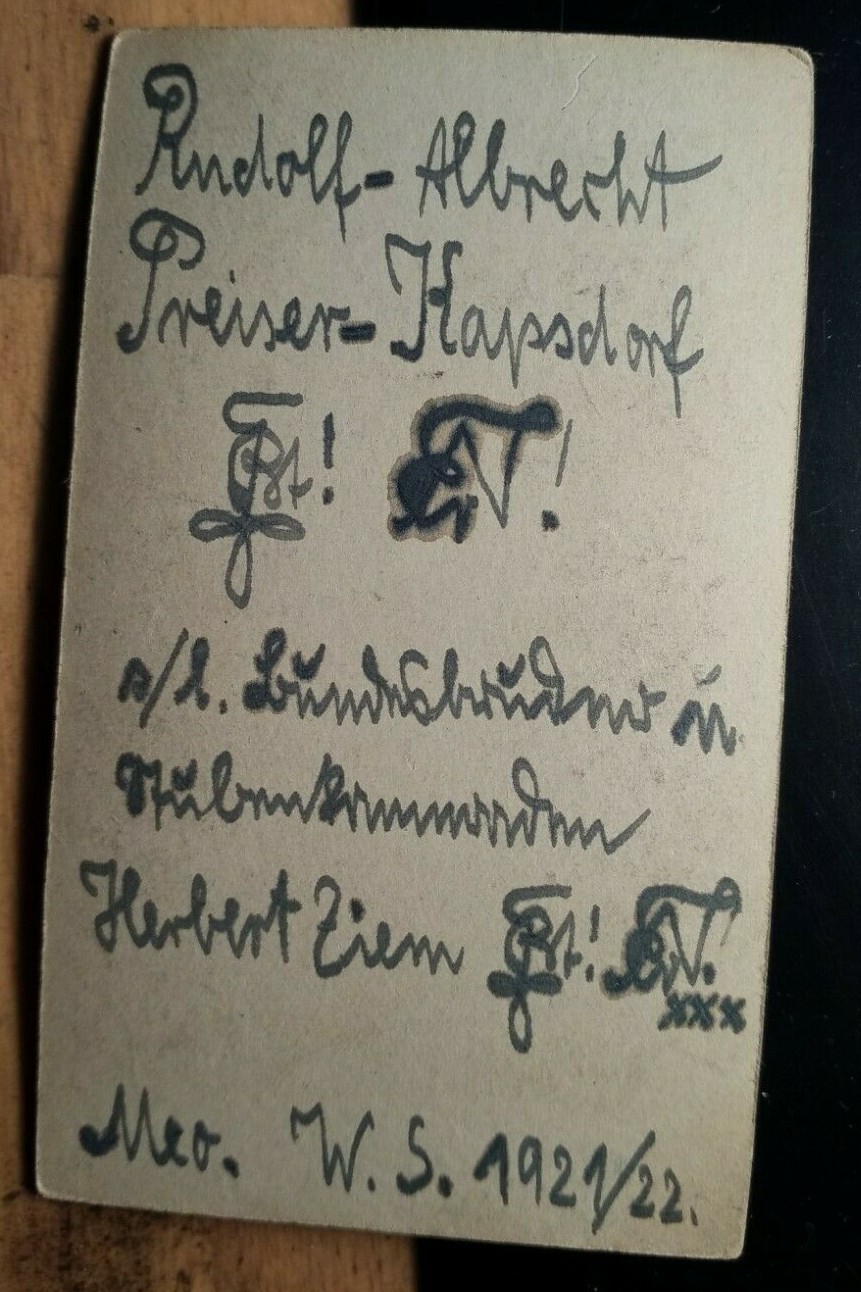 Rudolf-Albrecht
Preiser-Kapsdorf
s/l. Bundesbruder u.
Stubenkameraden
Herbert Ziem
xxx
W. S. 1921/22.